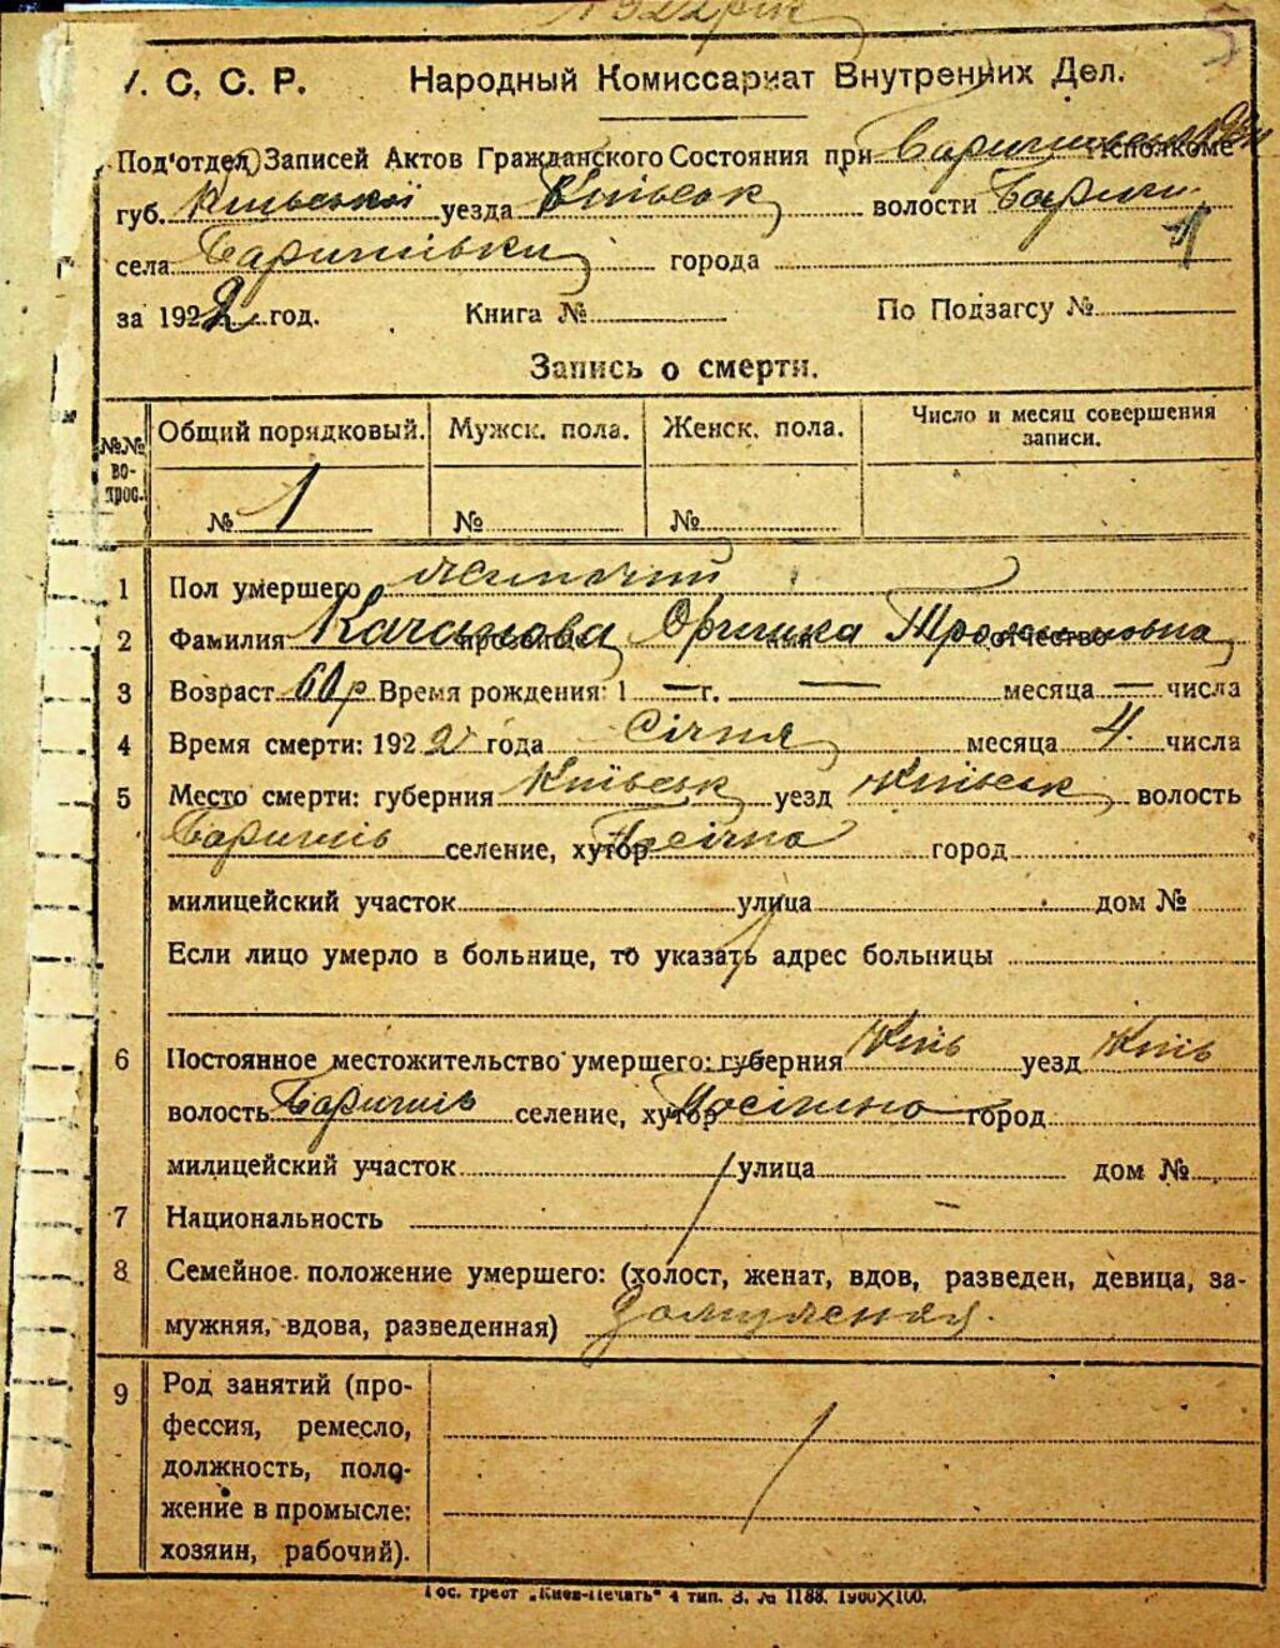 1922 рік
5
У. С. С. Р. Народный Комиссариат Внутренних Дел.
Под'отдел Записей Актов Гражданского Состояния при Исполкоме
губ. Київської уезда Київськ волости Бариш.
села Баришівки города
за 1922 год. Книга № По Подзагсу №
Запись о смерти.
№№ вопрос. Общий порядковый. Мужск. пола. Женск. пола. Число и месяц совершения
записи.
№ 1 № №
1 Пол умершего жіночий
2 Фамилия прозвище Оришка имя отчество
3 Возраст 60 р Время рождения: 1 — г. — месяца — числа
4 Время смерти: 1922 года Січня месяца 4. числа
5 Место смерти: губерния Київськ уезд Київськ волость
Баришів селение, хутор город
милицейский участок улица дом №
Если лицо умерло в больнице, то указать адрес больницы
6 Постоянное местожительство умершего: губерния Київ уезд Київ
волость Баришів селение, хутор город
милицейский участок улица дом №
7 Национальность —
8 Семейное положение умершего: (холост, женат, вдов, разведен, девица, за-
мужняя, вдова, разведенная)
9 Род занятий (про-
фессия, ремесло,
должность, поло-
жение в промысле:
хозяин, рабочий).
Гос. трест „Киев-Печать" 4 тип. З. № 1188. 1900×100.